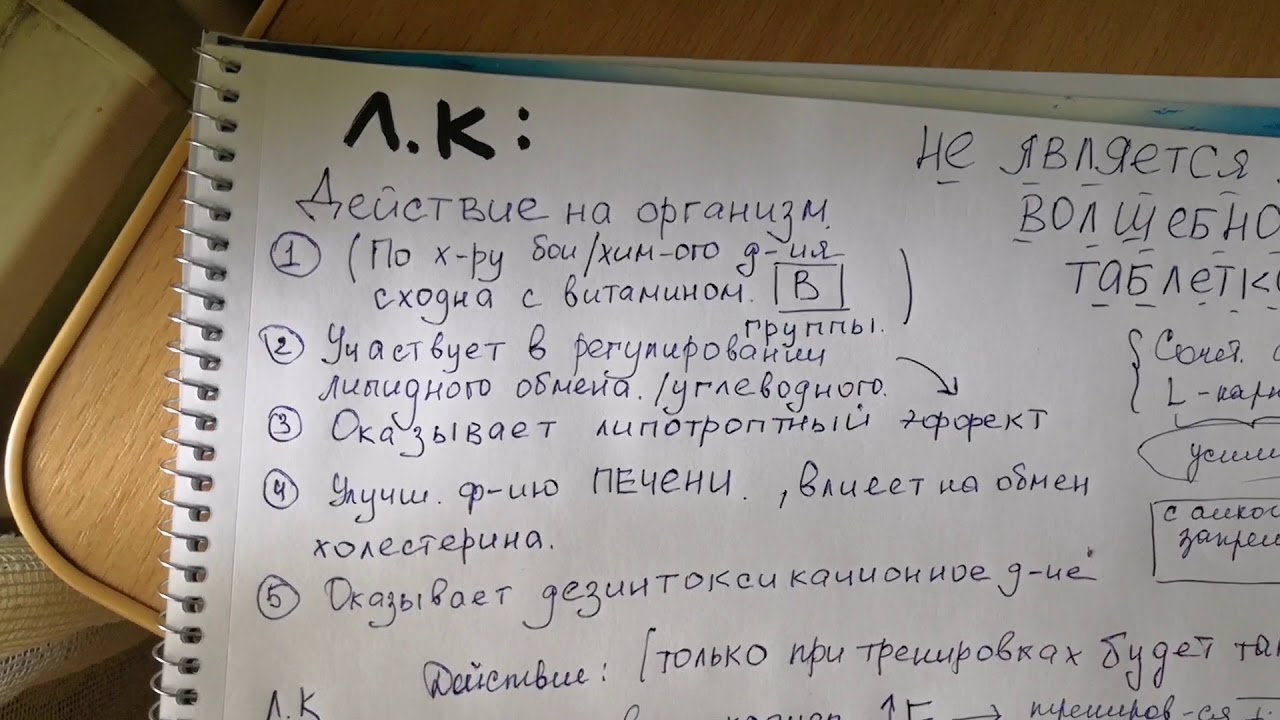 Л.К:
Действие на организм.
① (По х-ру бои/хим-ого д-ия
сходна с витамином. В )
группы.
② Участвует в регулировании
липидного обмена./углеводного.
③ Оказывает липотроптный эффект
④ Улучш. ф-ию ПЕЧЕНИ. , влиеет на обмен
холестерина.
⑤ Оказывает дезинтоксикационное д-ие
Действие: (только при тренировках будет
Л.К
↑Е → трениров-ся
НЕ ЯВЛЯЕТСЯ
ВОЛШЕБНО
ТАБЛЕТК
{ Сочет.
L-карн
усили
с алког
запрещ